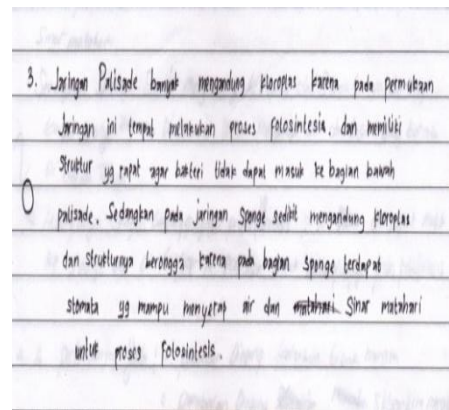 3. Jaringan Palisade banyak mengandung kloroplas karena pada permukaan
Jaringan ini tempat melakukan proses fotosintesis. dan memiliki
Struktur yg rapat agar bakteri tidak dapat masuk ke bagian bawah
palisade. Sedangkan pada jaringan Sponge sedikit mengandung kloroplas
dan strukturnya berongga karena pada bagian sponge terdapat
stomata yg mampu menyerap air dan matahari Sinar matahari
untuk proses fotosintesis.